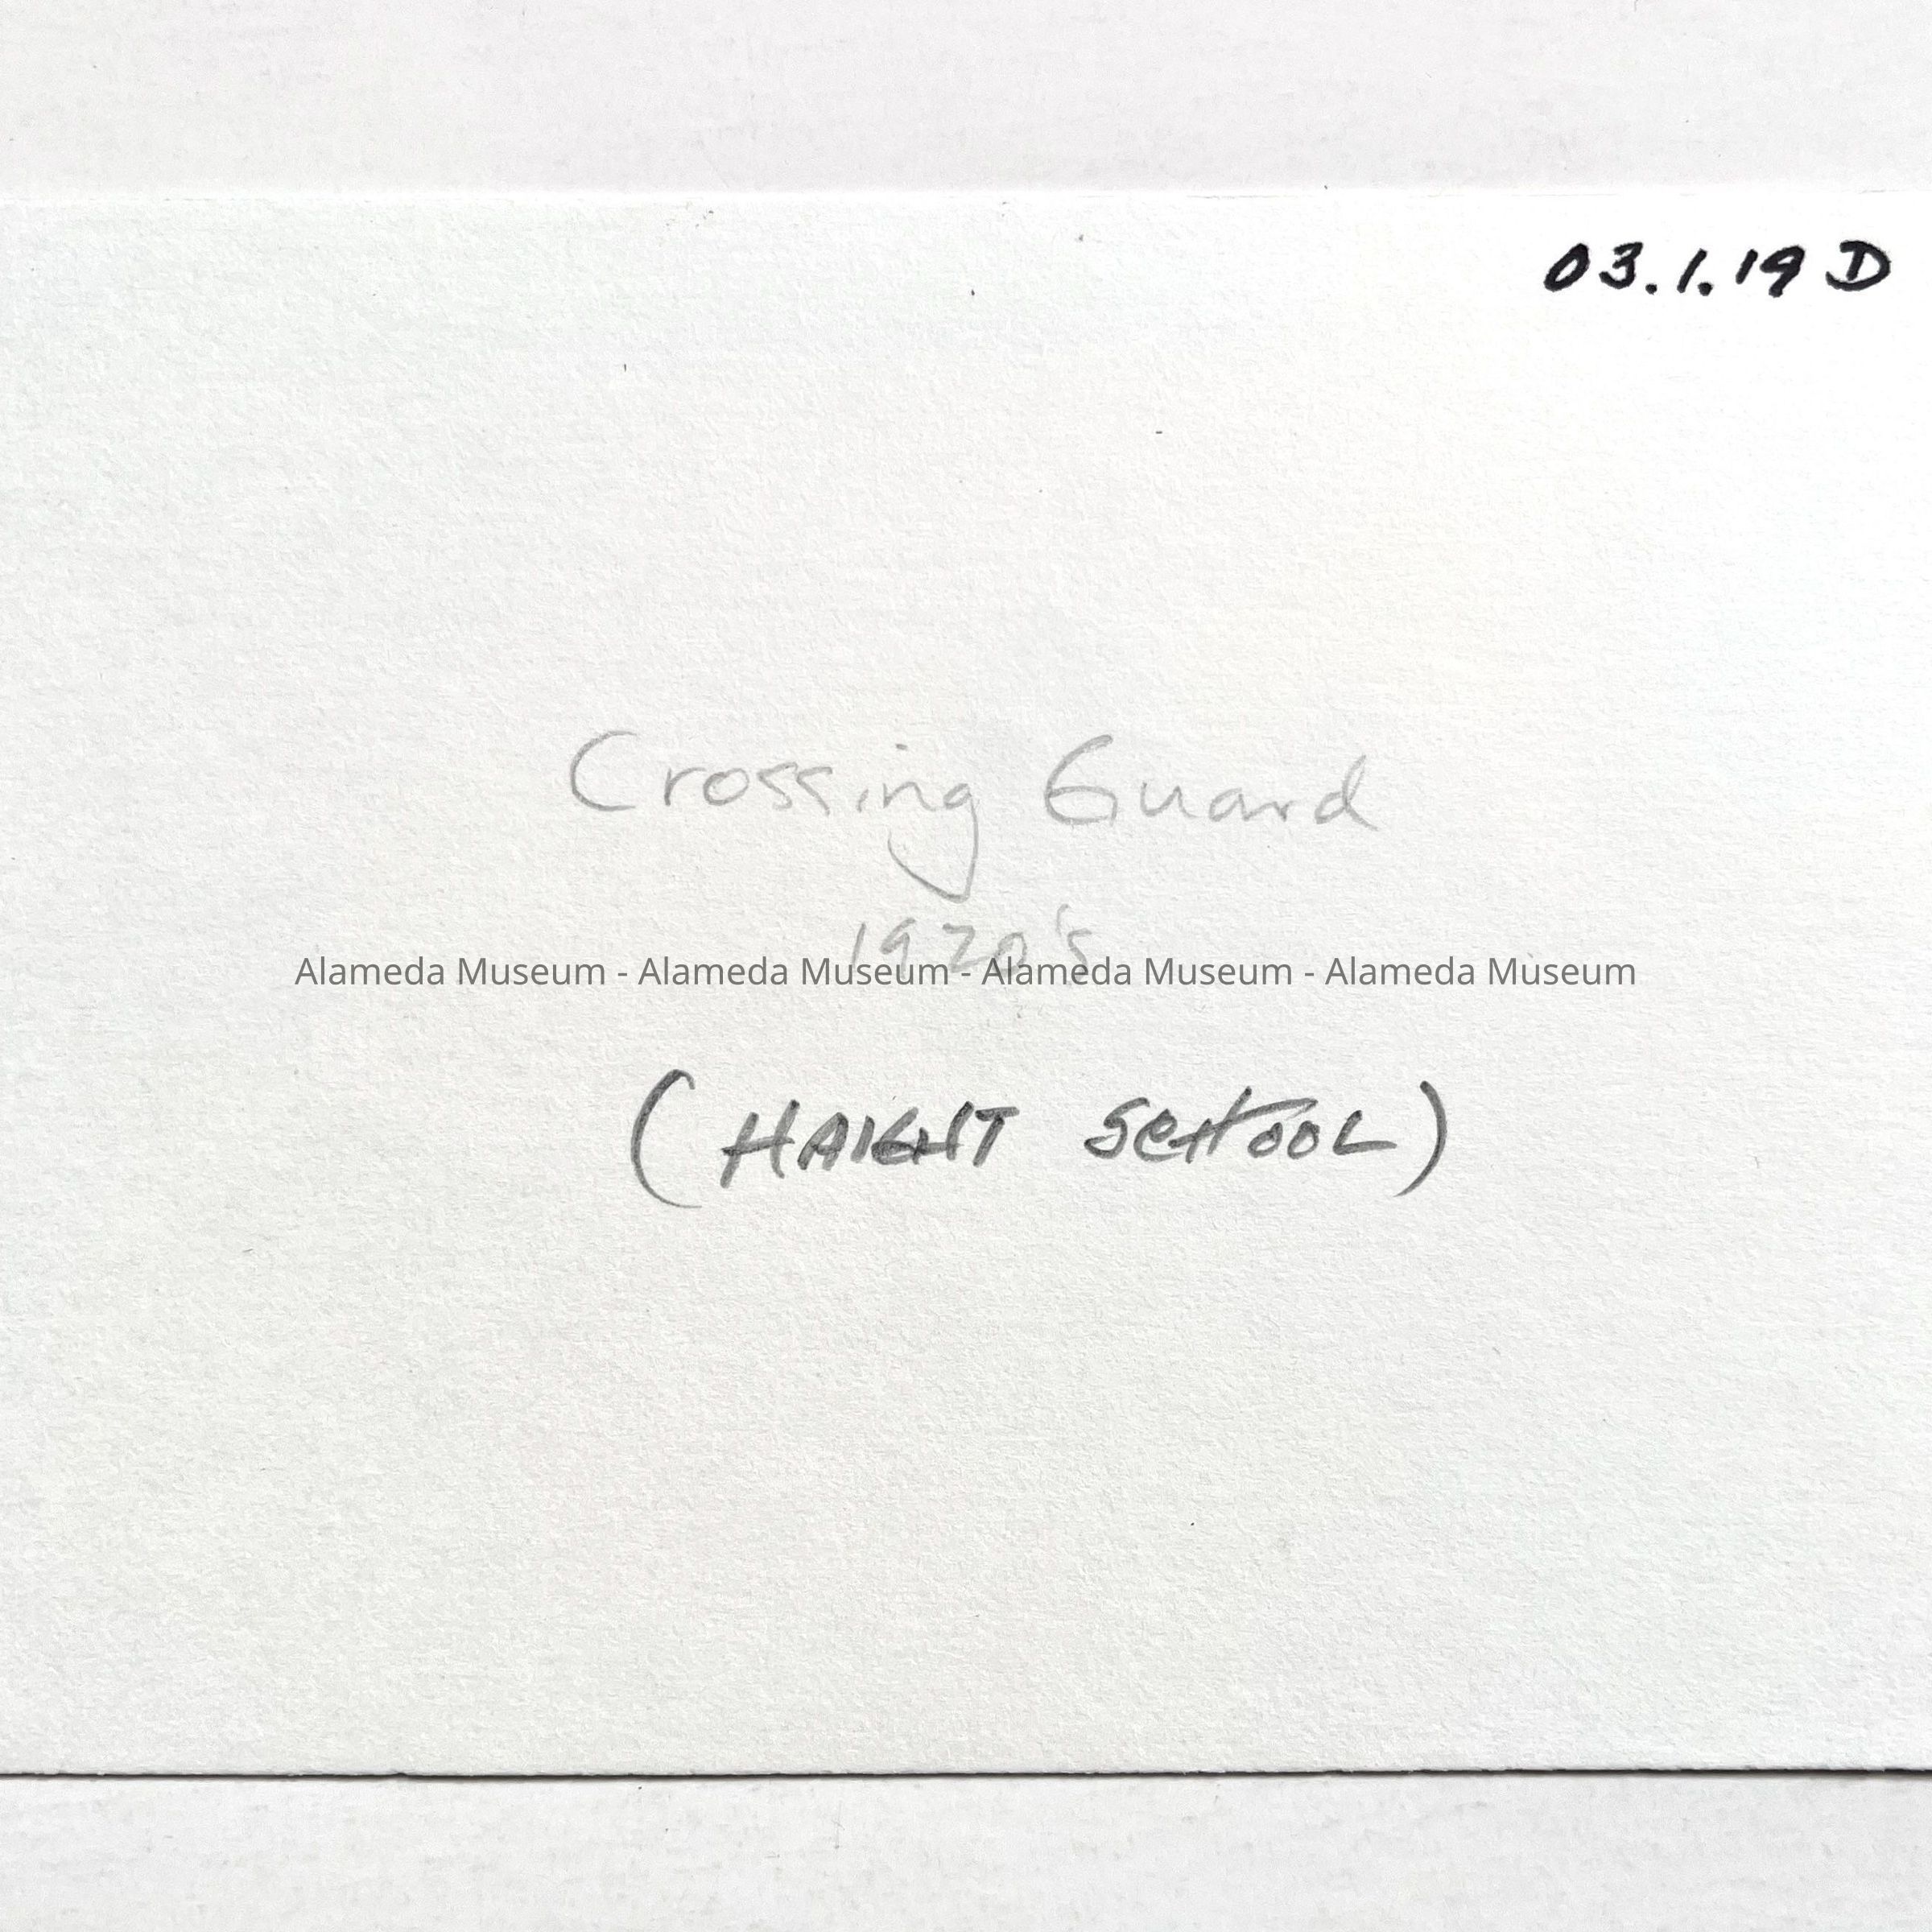 03.1.19 D
Crossing Guard
1920's
Alameda Museum - Alameda Museum - Alameda Museum - Alameda Museum
(HAIGHT SCHOOL)